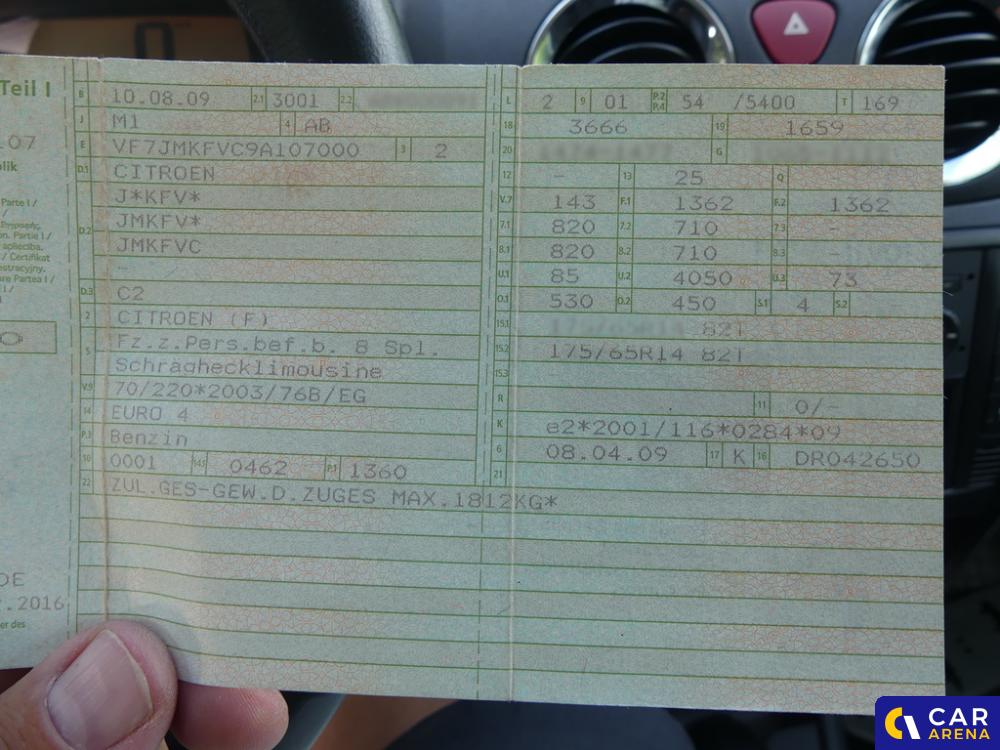 Teil I
B 10.08.09 2.1 3001 2.2
J M1 4 AB
E VF7JMKFVC9A107000 3 2
D.1 CITROEN
J*KFV*
D.2 JMKFV*
JMKFVC
-
D.3 C2
2 CITROEN (F)
5 Fz.z.Pers.bef.b. 8 Spl.
Schräghecklimousine
V.9 70/220*2003/76B/EG
14 EURO 4
P.3 Benzin
10 0001 14.1 0462 P.1 1360
22 ZUL.GES-GEW.D.ZUGES MAX.1812KG*
L 2 9 01 P.2 P.4 54 /5400 T 169
18 3666 19 1659
20 G
12 - 13 25 Q
V.7 143 F.1 1362 F.2 1362
7.1 820 7.2 710 7.3 -
8.1 820 8.2 710 8.3 -
U.1 85 U.2 4050 U.3 73
O.1 530 O.2 450 S.1 4 S.2
15.1 175/65R14 82T
15.2 175/65R14 82T
15.3
R 11 0/-
K e2*2001/116*0284*09
6 08.04.09 17 K 16 DR042650
21
07
Parte I /
on. Partie I /
apliecība.
/ Certifikat
estracyjny.
are Partea I /
DE
.2016
er des
CAR
ARENA